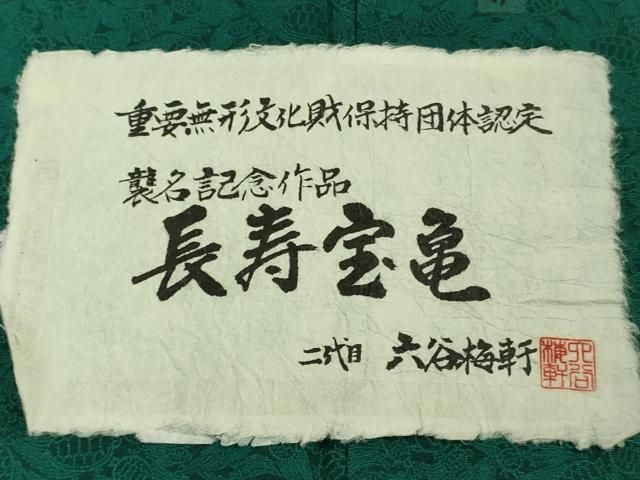 重要無形文化財保持団体認定
襲名記念作品
長寿宝亀
二代目 六谷梅軒
六谷梅軒